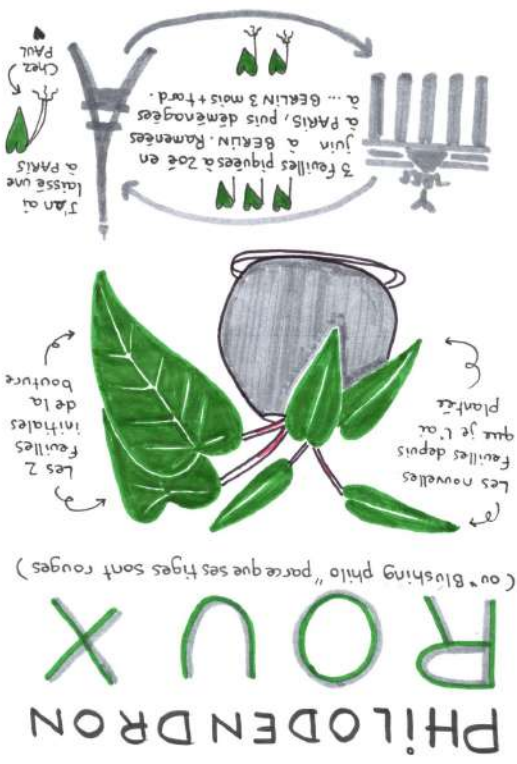 PHILODENDRON
ROUX
(ou "Blushing philo" parce que ses tiges sont rouges)
Les nouvelles
feuilles depuis
que je l'ai
plantée
Les 2
feuilles
initiales
de la
bouture
3 feuilles piquées à Zoé en
juin à BERLIN. Ramenées
à PARIS, puis déménagées
à ... BERLIN 3 mois + tard.
J'en ai
laissé une
à PARIS
Chez
PAUL